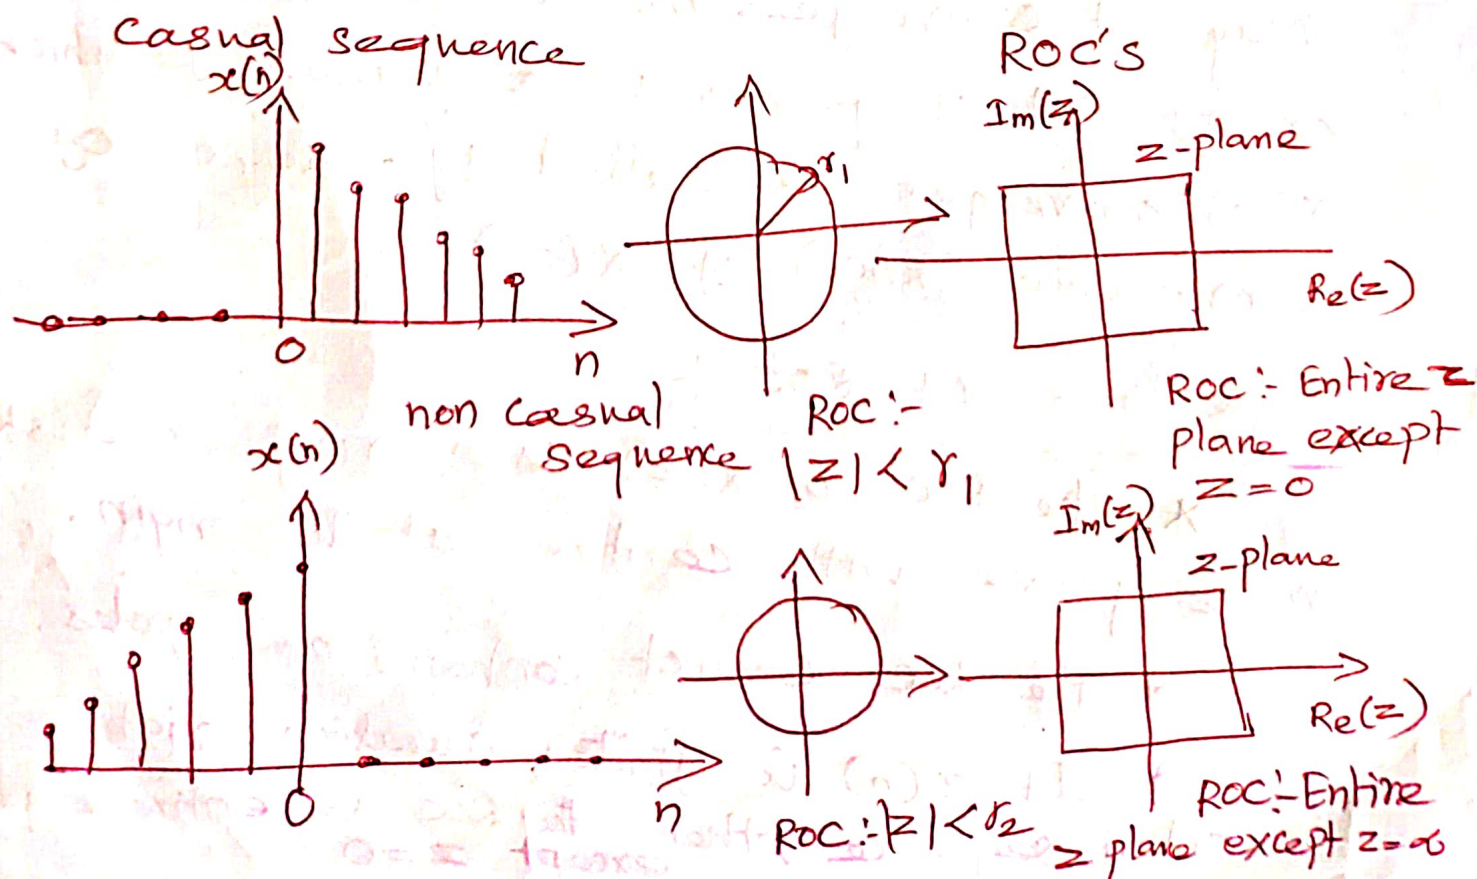 Casual sequence
x(n)
0
n
r1
ROC :-
|z| < r1
ROC'S
Im(z)
z-plane
Re(z)
ROC :- Entire z
plane except
z = 0
non casual
sequence
x(n)
0
n
ROC :- |z| < r2
Im(z)
z-plane
Re(z)
ROC :- Entire
z plane except z = ∞